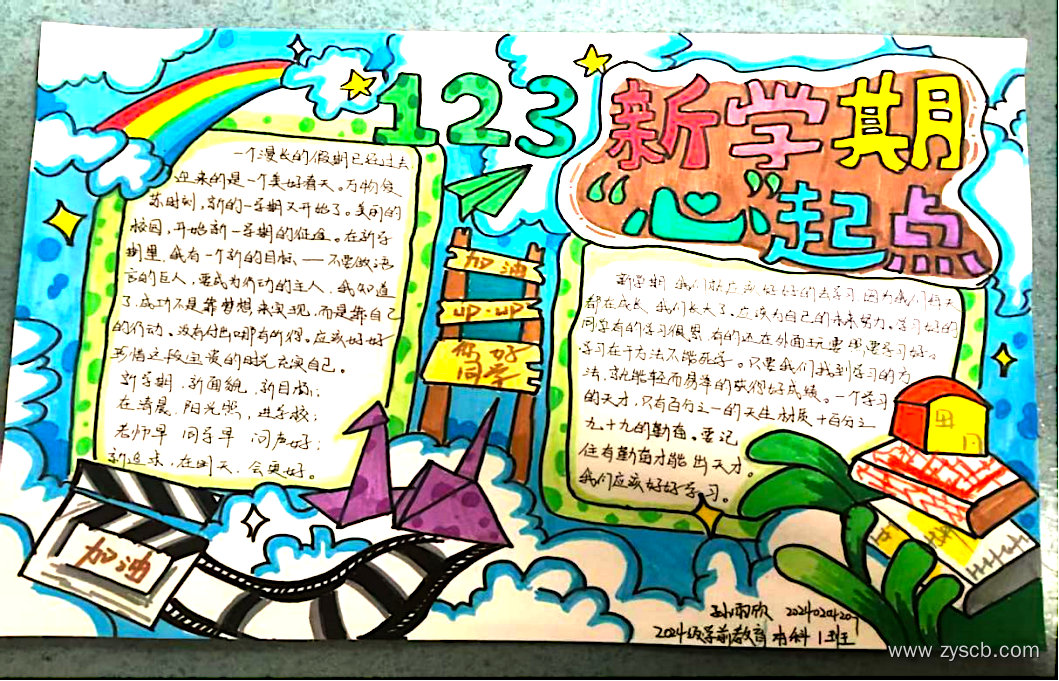 123
新学期
“心”起点
一个漫长的假期已经过去
迎来的是一个美好春天。万物复
苏时刻,新的一学期又开始了。美丽的
校园,开始新一学期的征途。在新学
期里,我有一个新的目标——不要做语
言的巨人,要成为行动的主人,我知道
了,成功不是靠梦想来实现,而是靠自己
的行动。没有付出哪有的得。应该好好
珍惜这段宝贵的时光充实自己。
新学期,新面貌,新目标;
在清晨,阳光照,进学校;
老师早 同学早 问声好;
新近来,在明天,会更好。
加油
up·up
你好
同学
加油
新学期,我们就应当好好的去学习,因为我们每天
都在成长,我们长大了,应该为自己的未来努力。学习好的
同学有的学习很累,有的还在外面玩耍,学习好。
学习在于方法不能死学。只要我们找到学习的方
法,就能轻而易举的获得好成绩。一个学习
的天才,只有百分之一的天生材质,十百分之
九十九的勤奋。要记
住有勤奋才能出天才。
我们应该好好学习。
孙雨欣
2024级学前教育本科1班
www.zyscb.com